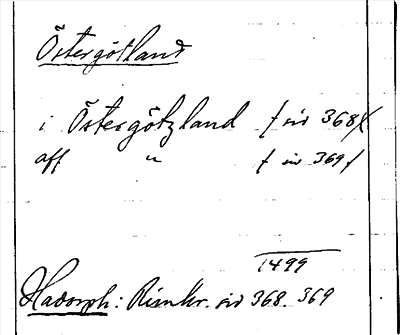 Östergötland
i Östergötzland / sid 368 /
aff " / sid 369 /
1499
Hadorph: Rimkr. sid 368. 369